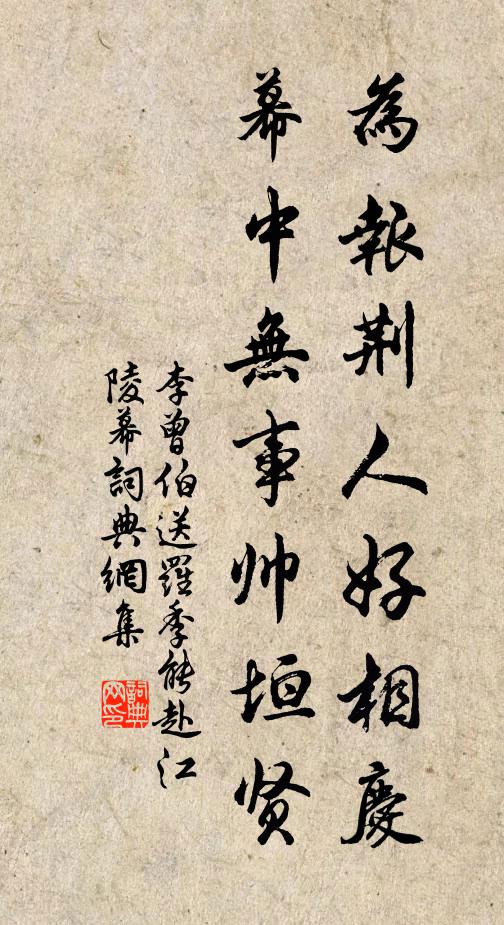 為報荆人好相慶
幕中無事帅垣贤
李曾伯送羅季能赴江
陵幕詞典網集
詞典网印